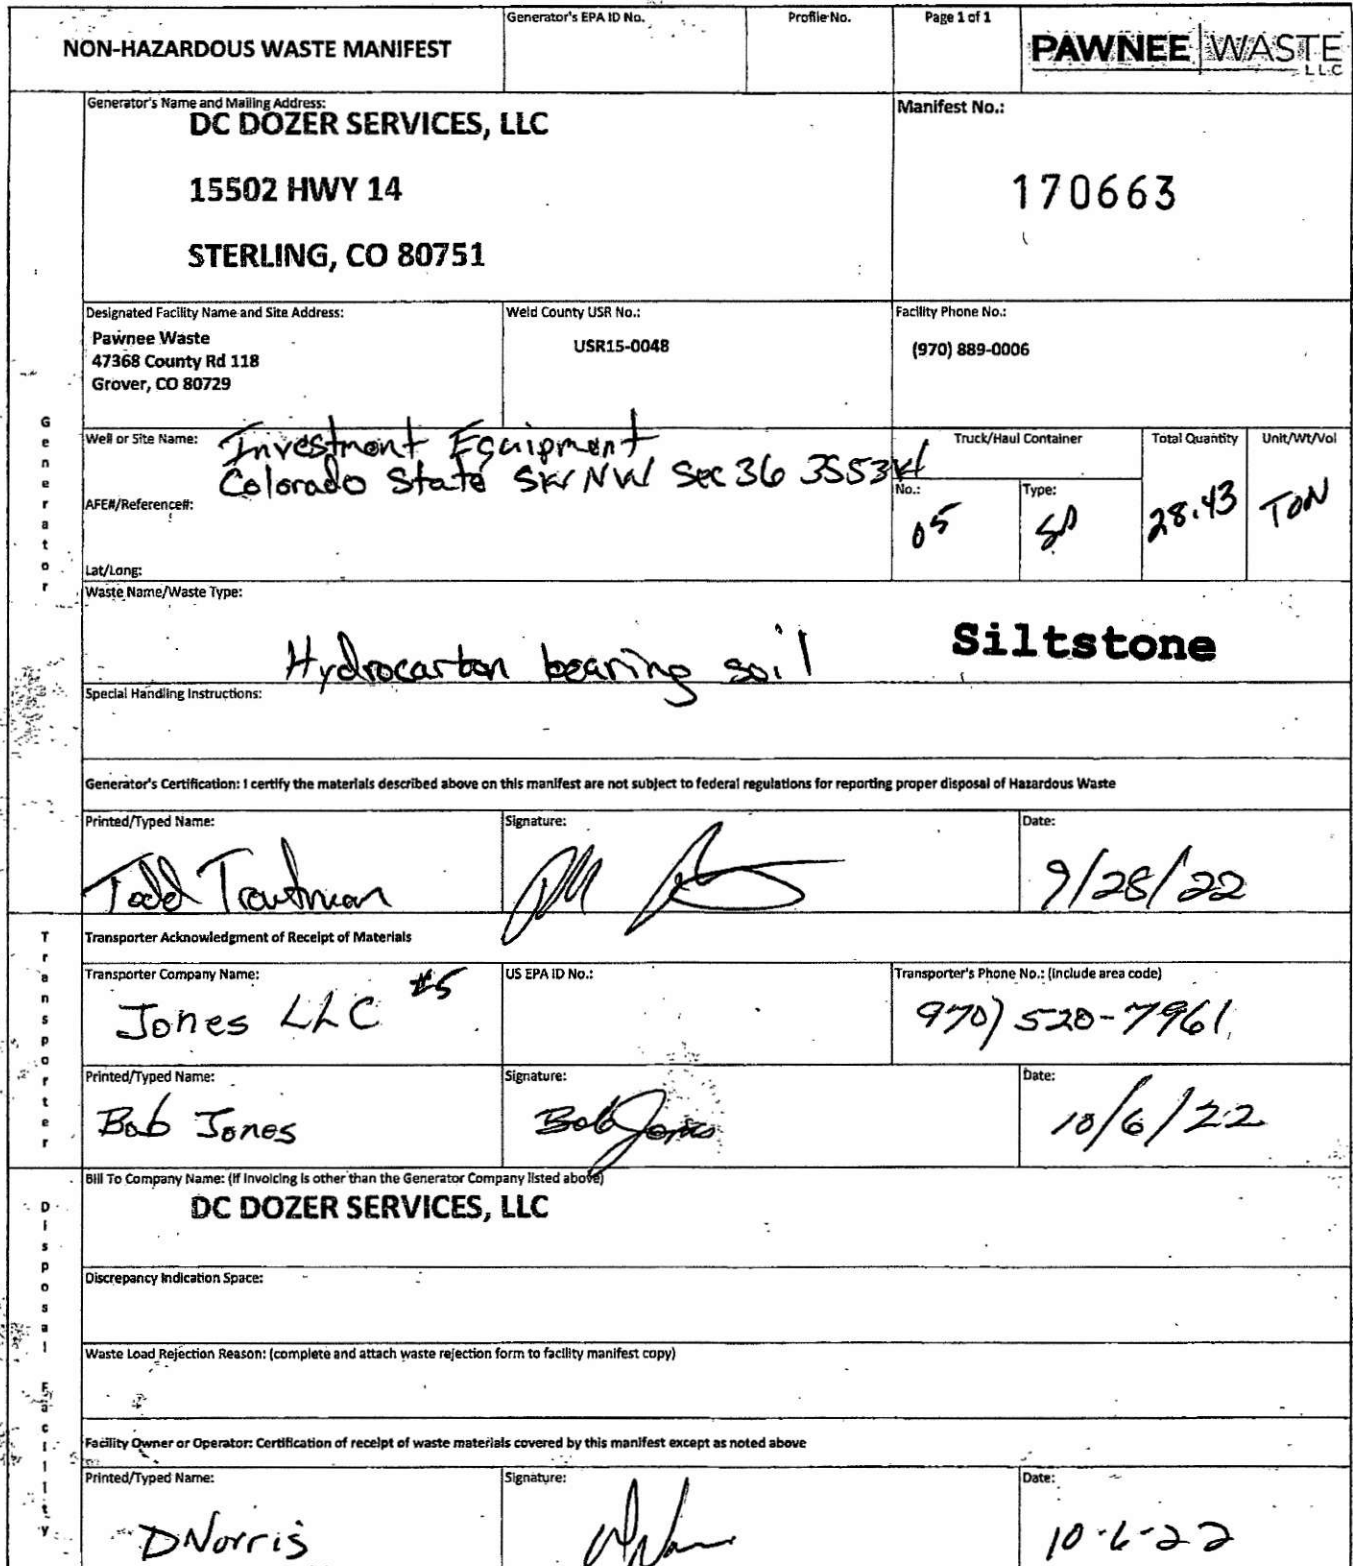 NON-HAZARDOUS WASTE MANIFEST
Generator's EPA ID No.
Profile No.
Page 1 of 1
PAWNEE WASTE
LLC
Generator's Name and Mailing Address:
DC DOZER SERVICES, LLC
15502 HWY 14
STERLING, CO 80751
Manifest No.:
170663
Designated Facility Name and Site Address:
Pawnee Waste
47368 County Rd 118
Grover, CO 80729
Weld County USR No.:
USR15-0048
Facility Phone No.:
(970) 889-0006
Generator
Well or Site Name:
Investment Equipment
Colorado State SWNW Sec 36 3S53W
AFE#/Reference#:
Lat/Long:
Truck/Haul Container
No.:
05
Type:
SD
Total Quantity
28.43
Unit/Wt/Vol
TON
Waste Name/Waste Type:
Hydrocarbon bearing soil
Siltstone
Special Handling Instructions:
Generator's Certification: I certify the materials described above on this manifest are not subject to federal regulations for reporting proper disposal of Hazardous Waste
Printed/Typed Name:
Todd Trautman
Signature:
Date:
9/28/22
Transporter
Transporter Acknowledgment of Receipt of Materials
Transporter Company Name:
Jones LLC #5
US EPA ID No.:
Transporter's Phone No.: (include area code)
970) 520-7961
Printed/Typed Name:
Bob Jones
Signature:
Bob Jones
Date:
10/6/22
Disposal Facility
Bill To Company Name: (if invoicing is other than the Generator Company listed above)
DC DOZER SERVICES, LLC
Discrepancy Indication Space:
Waste Load Rejection Reason: (complete and attach waste rejection form to facility manifest copy)
Facility Owner or Operator: Certification of receipt of waste materials covered by this manifest except as noted above
Printed/Typed Name:
DNorris
Signature:
Date:
10-6-22